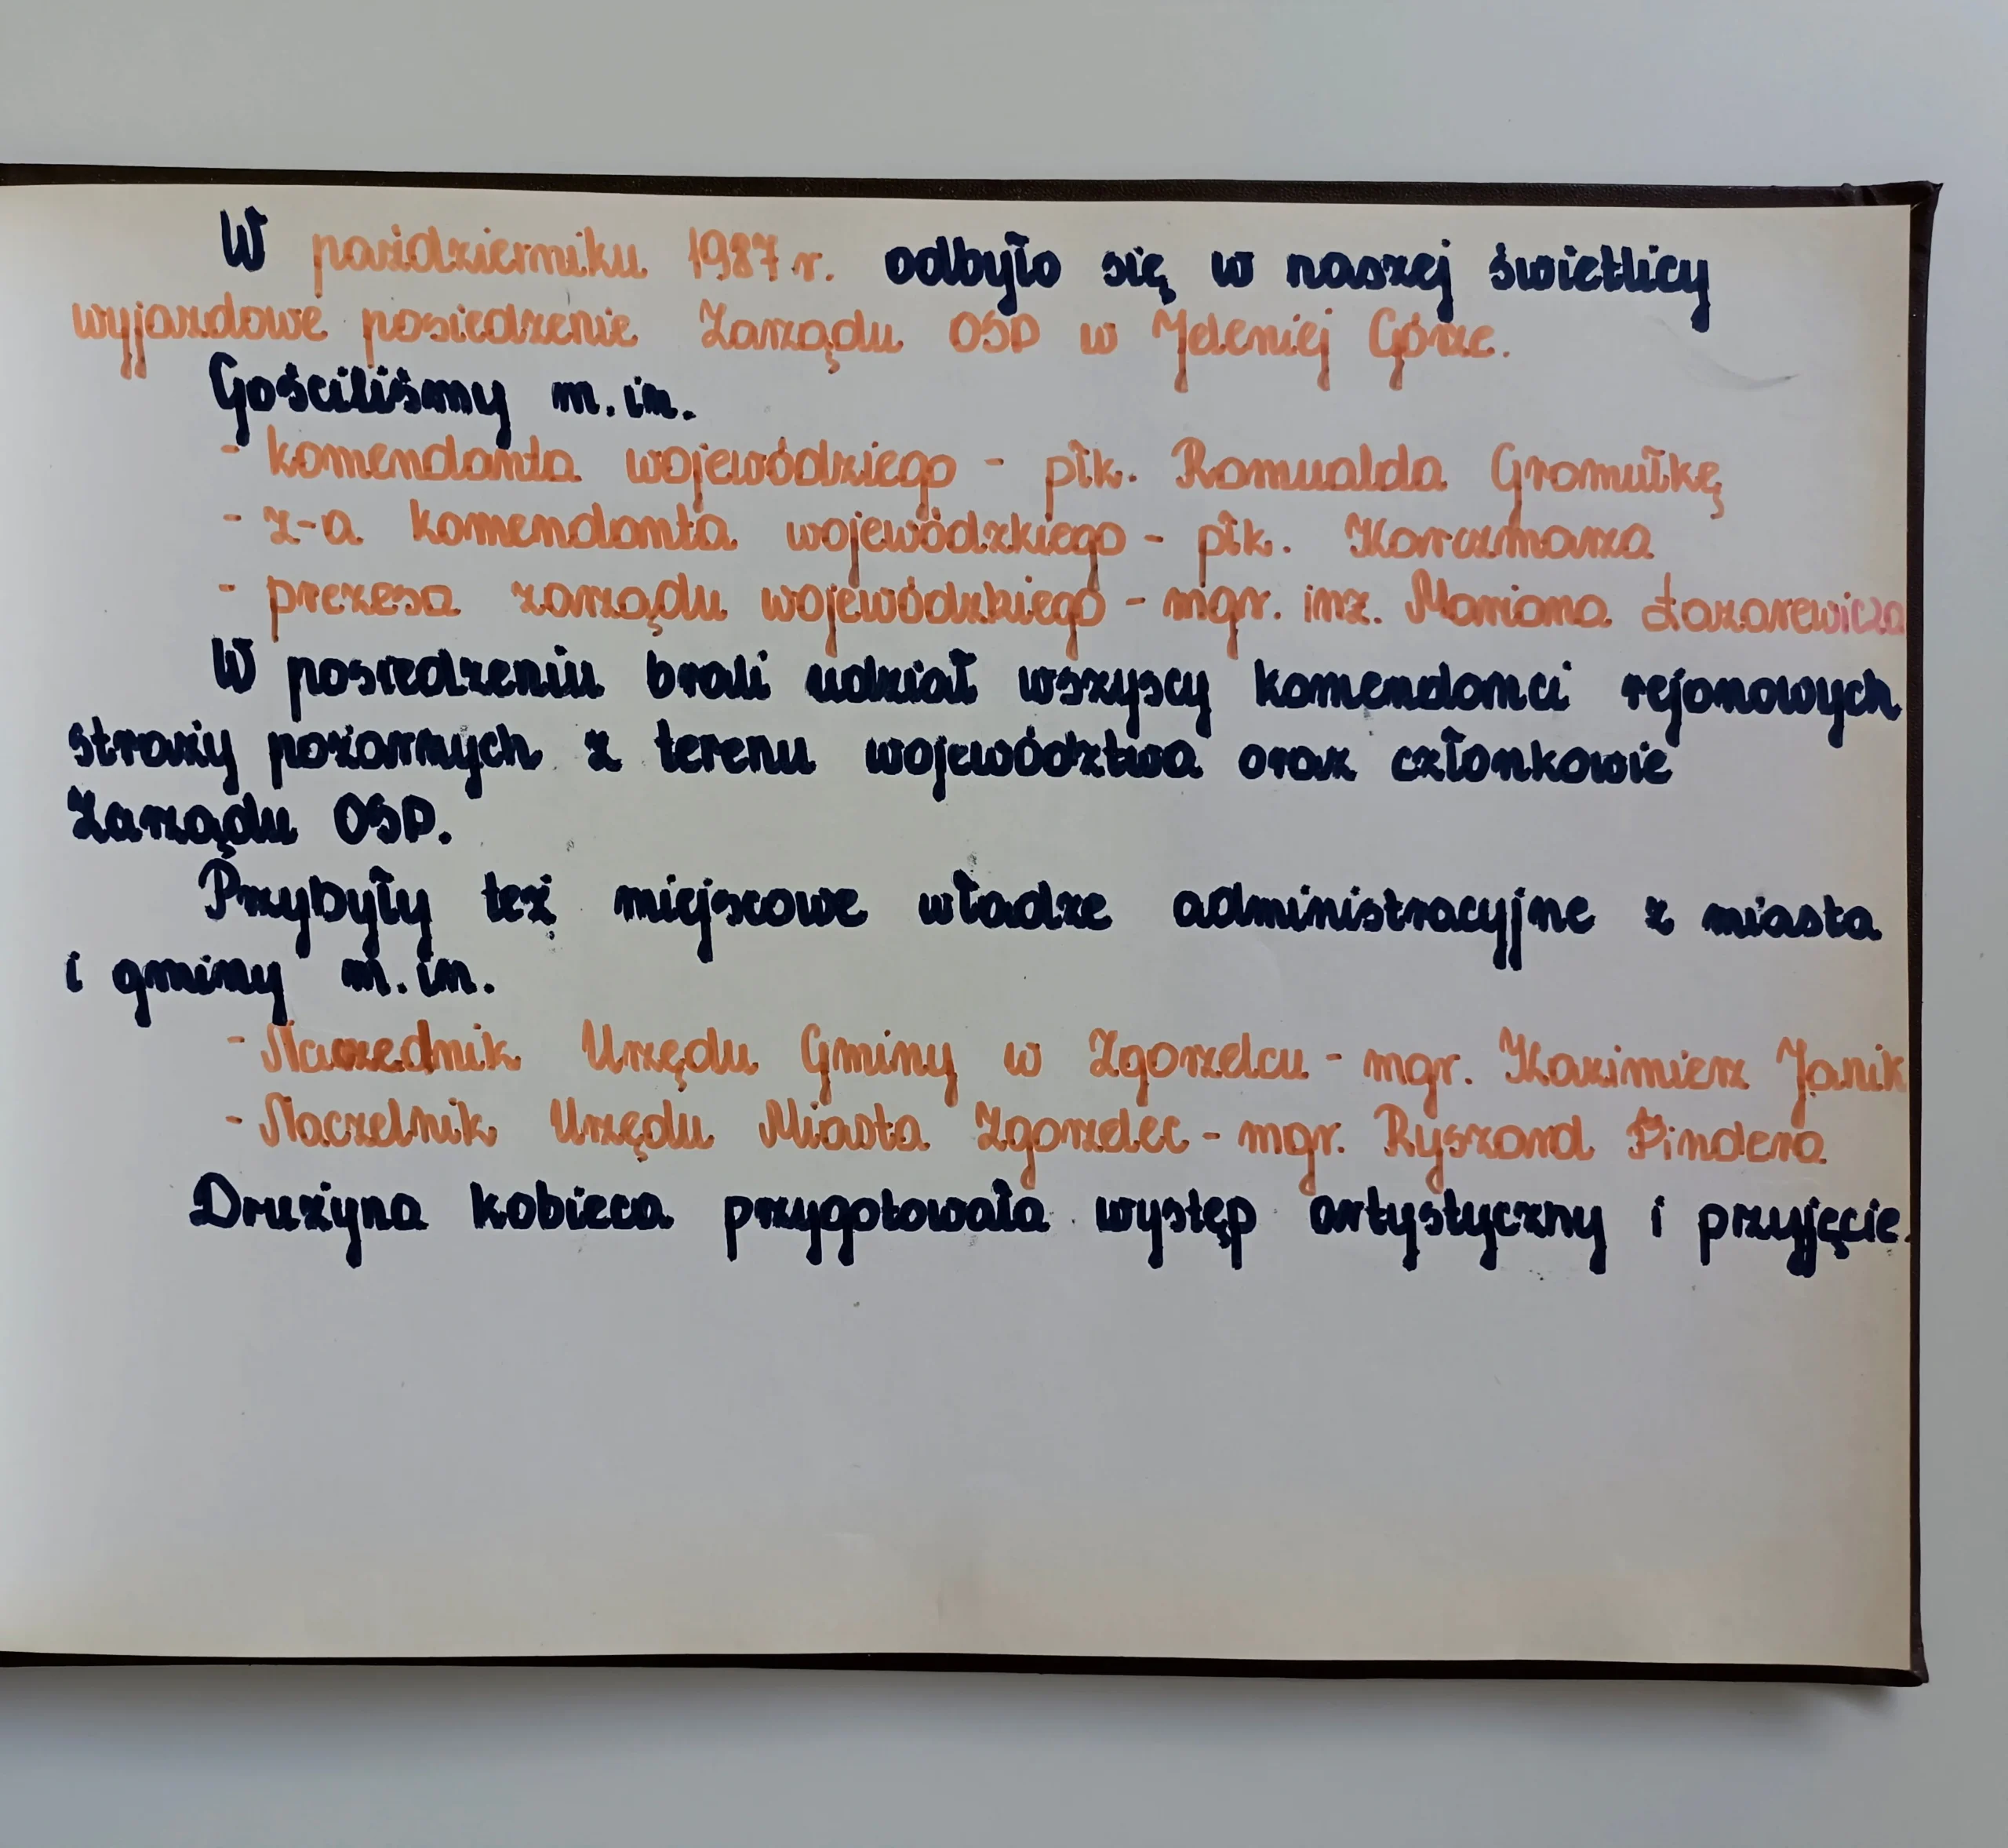 W październiku 1987 r. odbyło się w naszej świetlicy
wyjazdowe posiedzenie Zarządu OSP w Jeleniej Górze.
Gościliśmy m.in.
- komendanta wojewódzkiego - płk. Romualda Gromułkę
- z-a komendanta wojewódzkiego - płk.
- prezesa zarządu wojewódzkiego - mgr. inż. Mariana Łazarewicza
W posiedzeniu brali udział wszyscy komendanci rejonowych
straży pożarnych z terenu województwa oraz członkowie
Zarządu OSP.
Przybyły też miejscowe władze administracyjne z miasta
i gminy m.in.
- Naczelnik Urzędu Gminy w Zgorzelcu - mgr. Kazimierz Janik
- Naczelnik Urzędu Miasta Zgorzelec - mgr. Ryszard Pindera
Drużyna kobieca przygotowała występ artystyczny i przyjęcie.